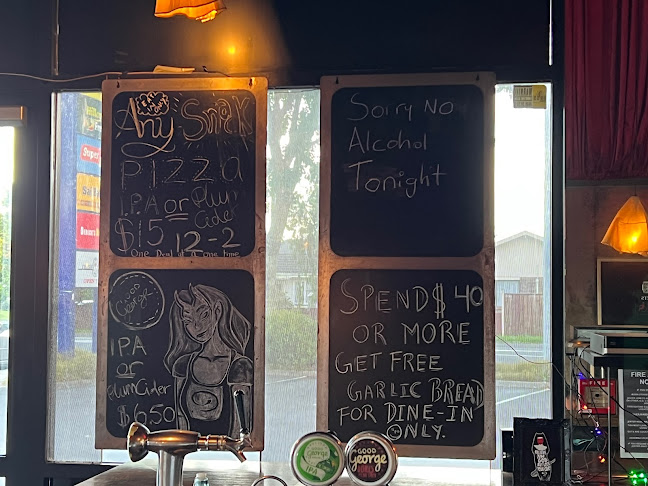 EAT IN ONLY
Any Snak
PIZZA
I.P.A or Plum
Cider
$15 12-2
One Deal at a one time
Sorry No
Alcohol
Tonight
Good
George
I.P.A
or
Plum Cider
$6.50
SPEND $40
OR MORE
GET FREE
GARLIC BREAD
FOR DINE-IN
ONLY.
George
IPA
GOOD
George
FIRE
FIRE